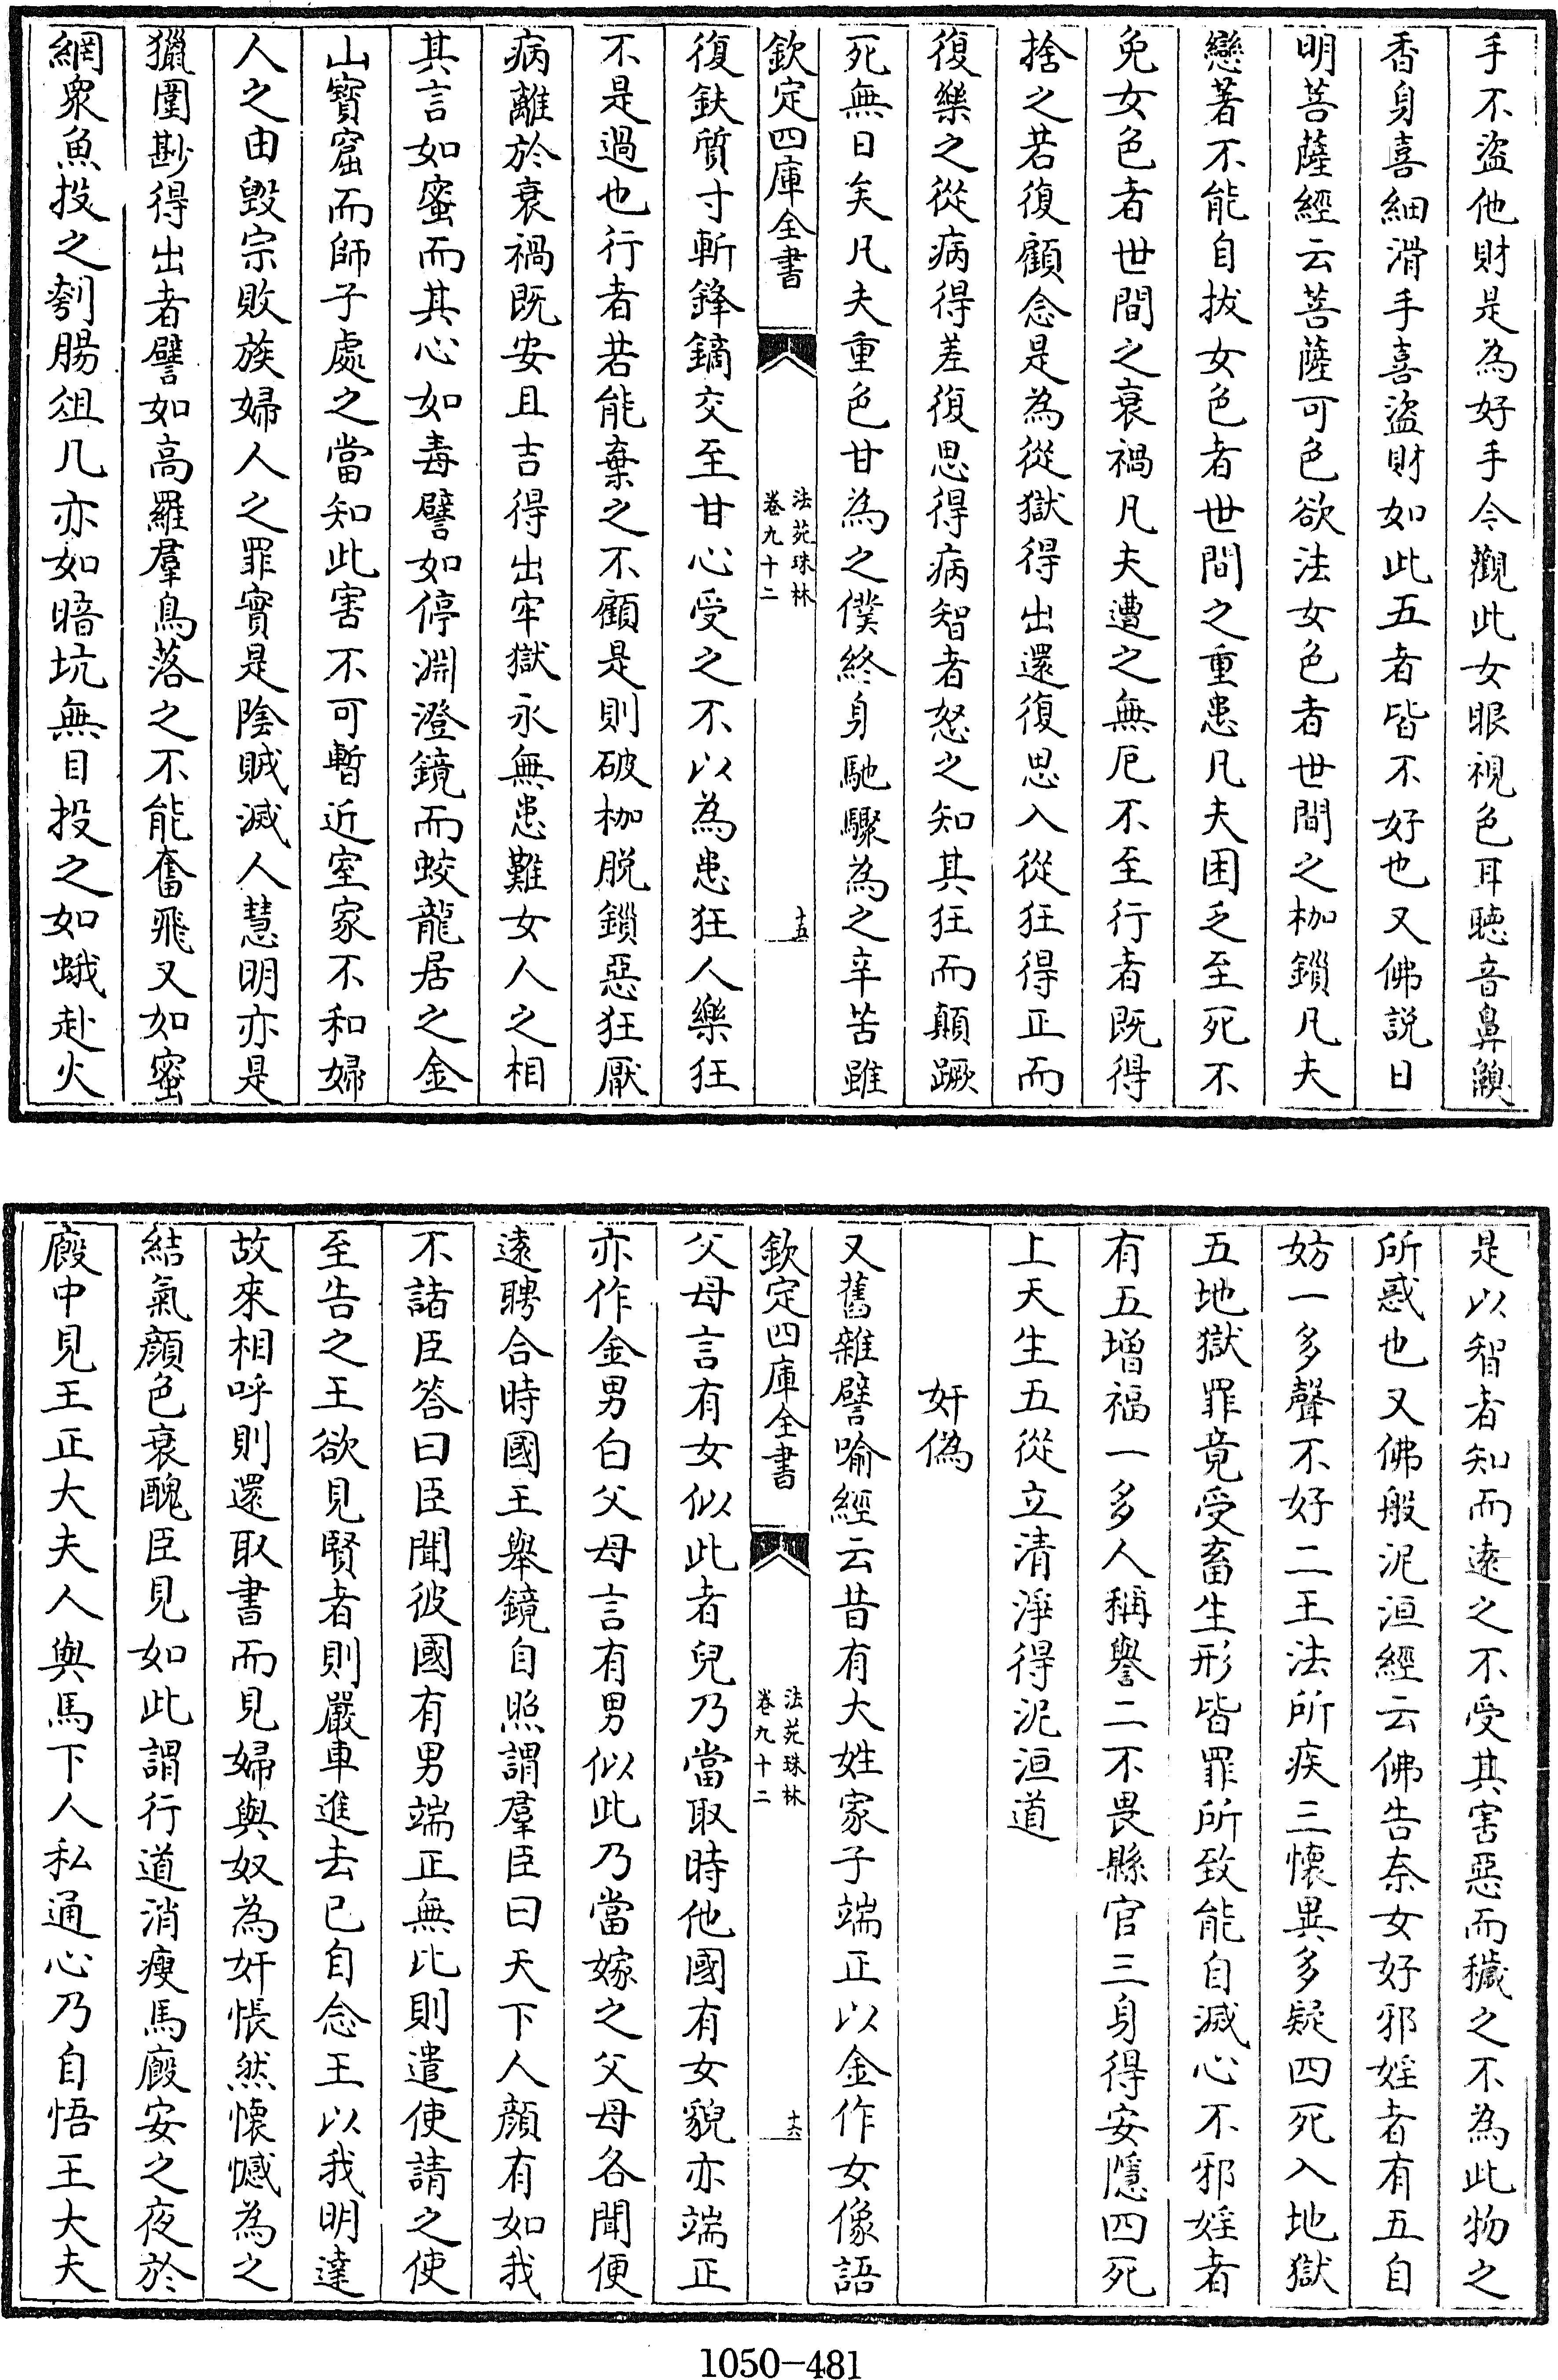 手不盜他財是為好手今觀此女眼視色耳聽音鼻齅
香身喜細滑手喜盜財如此五者皆不好也又佛説日
明菩薩經云菩薩可色欲法女色者世間之枷鎖凡夫
戀著不能自拔女色者世間之重患凡夫困乏至死不
免女色者世間之衰禍凡夫遭之無厄不至行者既得
捨之若復顧念是為從獄得出還復思入從狂得正而
復樂之從病得差復思得病智者怒之知其狂而顛蹶
死無日矣凡夫重色甘為之僕終身馳驟為之辛苦雖
欽定四庫全書
法苑珠林
卷九十二
十五
復鈇質寸斬鋒鏑交至甘心受之不以為患狂人樂狂
不是過也行者若能棄之不顧是則破枷脱鎖惡狂厭
病離於衰禍既安且吉得出牢獄永無患難女人之相
其言如蜜而其心如毒譬如停淵澄鏡而蛟龍居之金
山寳窟而師子處之當知此害不可暫近室家不和婦
人之由毀宗敗族婦人之罪實是陰賊滅人慧明亦是
獵圍尠得出者譬如高羅羣鳥落之不能奮飛又如蜜
網衆魚投之刳腸俎几亦如暗坑無目投之如蛾赴火
是以智者知而遠之不受其害惡而穢之不為此物之
所惑也又佛般泥洹經云佛告奈女好邪婬者有五自
妨一多聲不好二王法所疾三懷異多疑四死入地獄
五地獄罪竟受畜生形皆罪所致能自滅心不邪婬者
有五增福一多人稱譽二不畏縣官三身得安隱四死
上天生五從立清淨得泥洹道
奸偽
又舊雜譬喻經云昔有大姓家子端正以金作女像語
欽定四庫全書
法苑珠林
卷九十二
十六
父母言有女似此者兒乃當取時他國有女貌亦端正
亦作金男白父母言有男似此乃當嫁之父母各聞便
遠聘合時國王舉鏡自照謂羣臣曰天下人顔有如我
不諸臣答曰臣聞彼國有男端正無比則遣使請之使
至告之王欲見賢者則嚴車進去已自念王以我明達
故來相呼則還取書而見婦與奴為奸悵然懷憾為之
結氣顔色衰醜臣見如此謂行道消瘦馬廏安之夜於
廏中見王正大夫人與馬下人私通心乃自悟王大夫
1050-481